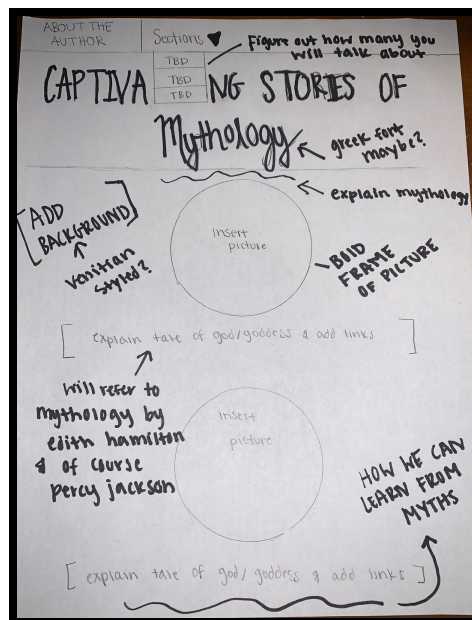 ABOUT THE
AUTHOR
Sections
TBD
TBD
TBD
Figure out how many you
will talk about
CAPTIVA NG STORIES OF
Mythology
greek font
maybe?
explain mythology
[ADD
BACKGROUND]
Vanitian
styled?
insert
picture
BOLD
FRAME
OF PICTURE
[explain tale of god/goddess & add links]
Will refer to
mythology by
edith hamilton
& of course
percy jackson
insert
picture
HOW WE CAN
LEARN FROM
MYTHS
[explain tale of god/goddess & add links]